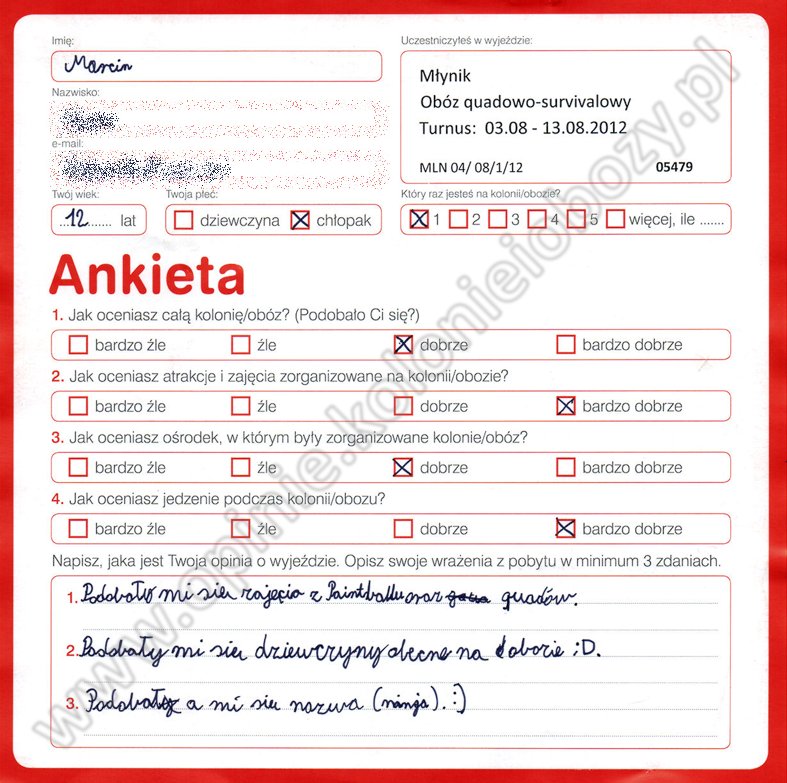 Imię:
Marcin
Nazwisko:
e-mail:
Twój wiek:
...12....... lat
Twoja płeć:
dziewczyna chłopak
Uczestniczyłeś w wyjeździe:
Młynik
Obóz quadowo-survivalowy
Turnus: 03.08 - 13.08.2012
MLN 04/ 08/1/12 05479
Który raz jesteś na kolonii/obozie?
1 2 3 4 5 więcej, ile .......
Ankieta
1. Jak oceniasz całą kolonię/obóz? (Podobało Ci się?)
bardzo źle źle dobrze bardzo dobrze
2. Jak oceniasz atrakcje i zajęcia zorganizowane na kolonii/obozie?
bardzo źle źle dobrze bardzo dobrze
3. Jak oceniasz ośrodek, w którym były zorganizowane kolonie/obóz?
bardzo źle źle dobrze bardzo dobrze
4. Jak oceniasz jedzenie podczas kolonii/obozu?
bardzo źle źle dobrze bardzo dobrze
Napisz, jaka jest Twoja opinia o wyjeździe. Opisz swoje wrażenia z pobytu w minimum 3 zdaniach.
1. Podobało mi sieu zajęcia z Paintballu oraz quadów.
2. Podobały mi sieu dziewczyny obecne na obozie ;D.
3. Podobała mi sieu nazwa (ninja). :)
www.opinie.kolonieiobozy.pl